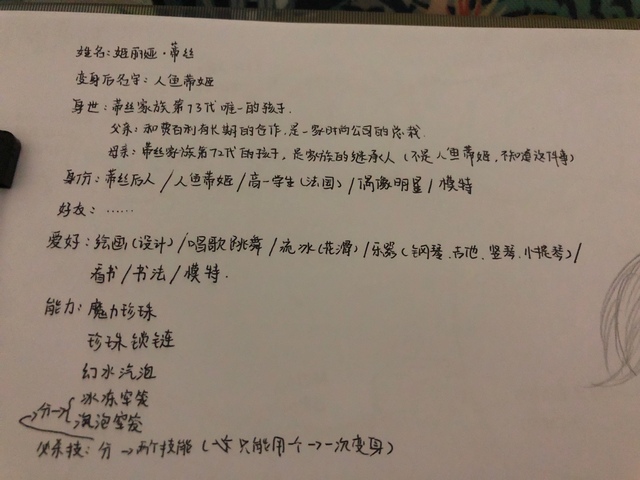 姓名：姬丽娅·蒂丝
变身后名字：人鱼蒂娅
身世：蒂丝家族第73代唯一的孩子.
父亲：和费百利有长期的合作，是一家时尚公司的总裁.
母亲：蒂丝家族第72代的孩子，是家族的继承人（不是人鱼蒂娅，不知道这件事）
身份：蒂丝后人/人鱼蒂娅/高一学生（法国）/偶像明星/模特
好友：……
爱好：绘画（设计）/唱歌跳舞/流冰（花滑）/乐器（钢琴、吉他、竖琴、小提琴）/
看书/书法/模特.
能力：魔力珍珠
珍珠锁链
幻水汽泡
冰冻
分→
泡泡
必杀技：分→两个技能（一次只能用一个→一次变身）